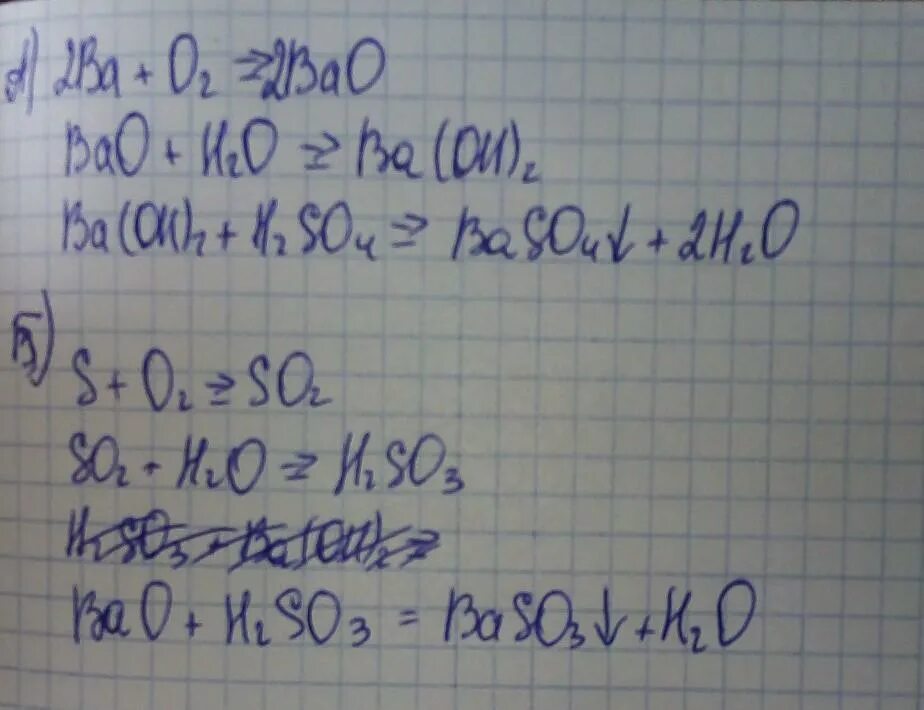 а) 2Ba + O₂ ⇒ 2BaO
BaO + H₂O ⇒ Ba(OH)₂
Ba(OH)₂ + H₂SO₄ ⇒ BaSO₄↓ + 2H₂O
Б)
S + O₂ ⇒ SO₂
SO₂ + H₂O ⇒ H₂SO₃
H₂SO₃ + Ba(OH)₂ ⇒
BaO + H₂SO₃ = BaSO₃↓ + H₂O